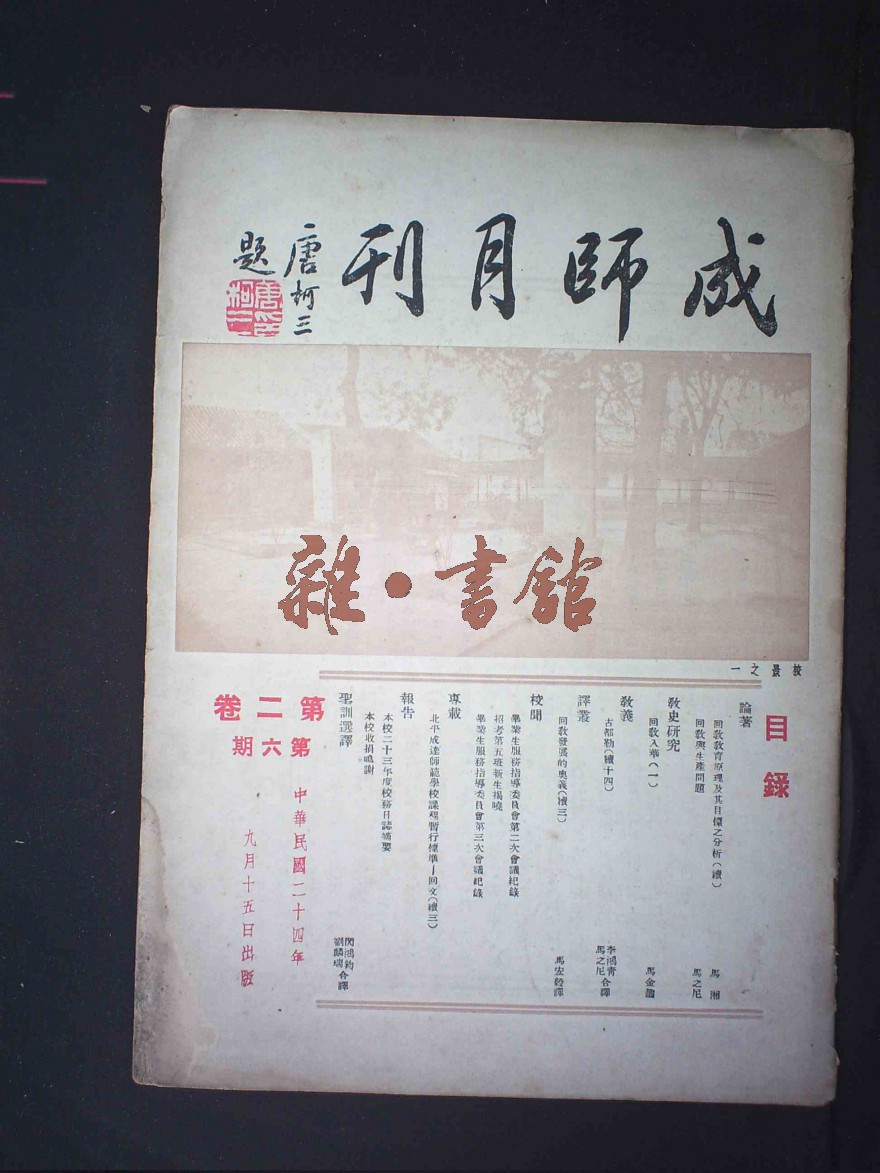 成師月刊
唐柯三
題
唐柯三
雜·書館
校景之一
目錄
論著
回教教育原理及其目標之分析(續) 馬湘
回教與生產問題 馬之尼
教史研究
回教入華(一) 馬金鵬
教義
古都勒(續十四) 李鴻青 馬之尼合譯
譯叢
回教發展的奧義(續三) 馬宏毅譯
校聞
畢業生服務指導委員會第二次會議紀錄
招考第五班新生揭曉
畢業生服務指導委員會第三次會議紀錄
專載
北平成達師範學校課程暫行標準—回文(續三)
報告
本校二十三年度校務日誌摘要
本校收捐鳴謝
聖訓選譯 閃鴻鈞 劉麟瑞合譯
第二卷
第六期
中華民國二十四年
九月十五日出版